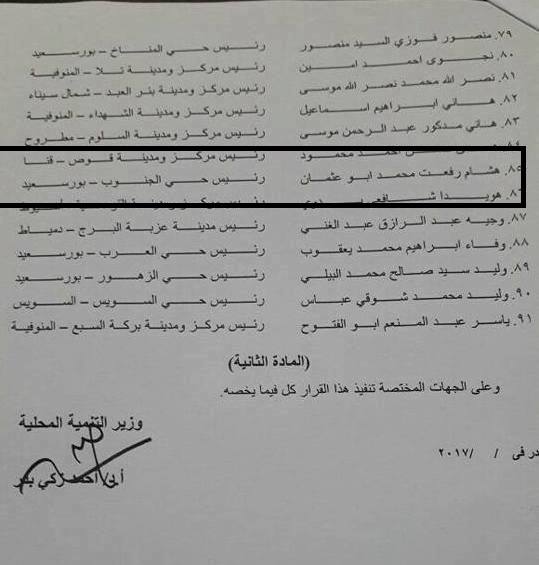 ٧٩. منصور فوزي السيد منصور رئيس حي المناخ – بورسعيد
٨٠. نجوى احمد امين رئيس مركز ومدينة تلا – المنوفية
٨١. نصر الله محمد نصر الله موسى رئيس مركز ومدينة بئر العبد – شمال سيناء
٨٢. هاني ابراهيم اسماعيل رئيس مركز ومدينة الشهداء – المنوفية
٨٣. هاني مدكور عبد الرحمن موسى رئيس مركز ومدينة السلوم – مطروح
احمد محمود رئيس مركز ومدينة قوص – قنا
٨٥. هشام رفعت محمد ابو عثمان رئيس حي الجنوب – بورسعيد
٨٦. هويدا شافعي
٨٧. وجيه عبد الرازق عبد الغني رئيس مدينة عزبة البرج – دمياط
٨٨. وفاء ابراهيم محمد يعقوب رئيس حي العرب – بورسعيد
٨٩. وليد سيد صالح محمد البيلي رئيس حي الزهور – بورسعيد
٩٠. وليد محمد شوقي عباس رئيس حي السويس – السويس
٩١. ياسر عبد المنعم ابو الفتوح رئيس مركز ومدينة بركة السبع – المنوفية
(المادة الثانية)
وعلى الجهات المختصة تنفيذ هذا القرار كل فيما يخصه.
وزير التنمية المحلية
در فى / / ٢٠١٧
أ.د/ احمد زكي بدر